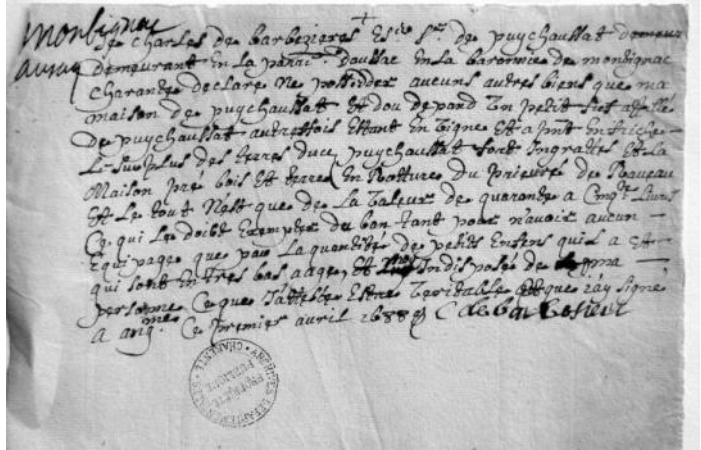 monbignac
Je charles de barbezieres Escr sr de puychaussat
demeurant en La parrsse doussac En La baronnie de montignac
charante declare Ne posseder aucuns autres biens que ma
maison de puychaussat Et dou depand Un petit fief appellé
de puychaussat autreffois Estant En Vigne Et a pnt En friche
Le surplus des terres ducq puychaussat sont Ingrattes Et La
Maison pré bois Et terres En Rotture du prieuré de Raveau
Et Le tout N'est que de La Valeur de quarante a Cinqte Livres
Ce qui Le doibt Exempter du ban tant pour n'avoir aucun
Equipage que par La quantité de petits Enfens quil a Et
qui sont En tres bas aage, Et Indisposée de ma
personne Ce que J'atteste Estre Veritable Et que j'ay signé
a angme Ce premier avril 1689 C de barbesieres
CHARENTE
PROPRIETE
PUBLIQUE